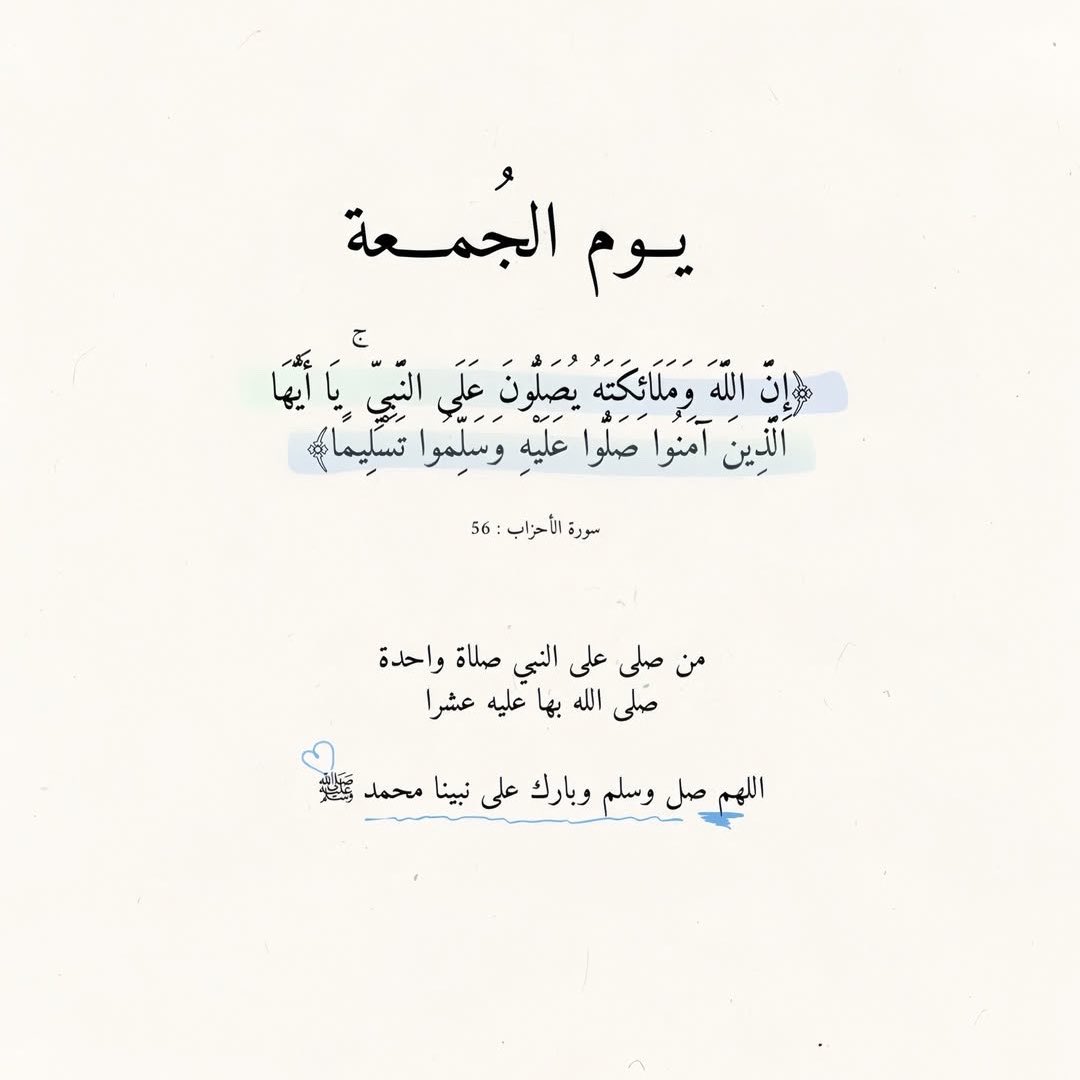 يـوم الجُمـعة
﴿إِنَّ اللَّهَ وَمَلَائِكَتَهُ يُصَلُّونَ عَلَى النَّبِيِّ ۚ يَا أَيُّهَا
الَّذِينَ آمَنُوا صَلُّوا عَلَيْهِ وَسَلِّمُوا تَسْلِيمًا﴾
سورة الأحزاب : 56
من صلى على النبي صلاة واحدة
صلى الله بها عليه عشرا
اللهم صل وسلم وبارك على نبينا محمد ﷺ